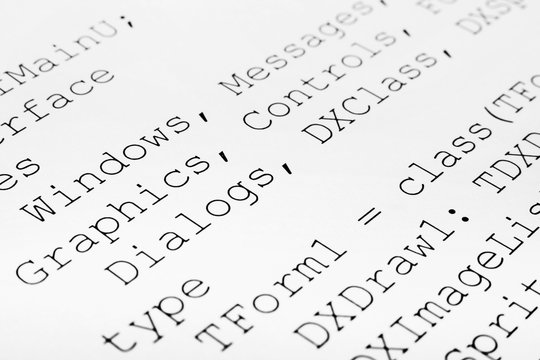 iMainU;
erface
es
Windows, Messages,
Graphics, Controls, Fo
Dialogs, DXClass, DXSp
type
TForm1 = class(TFo
DXDraw1: TDXD
DXImageLis
Sprit